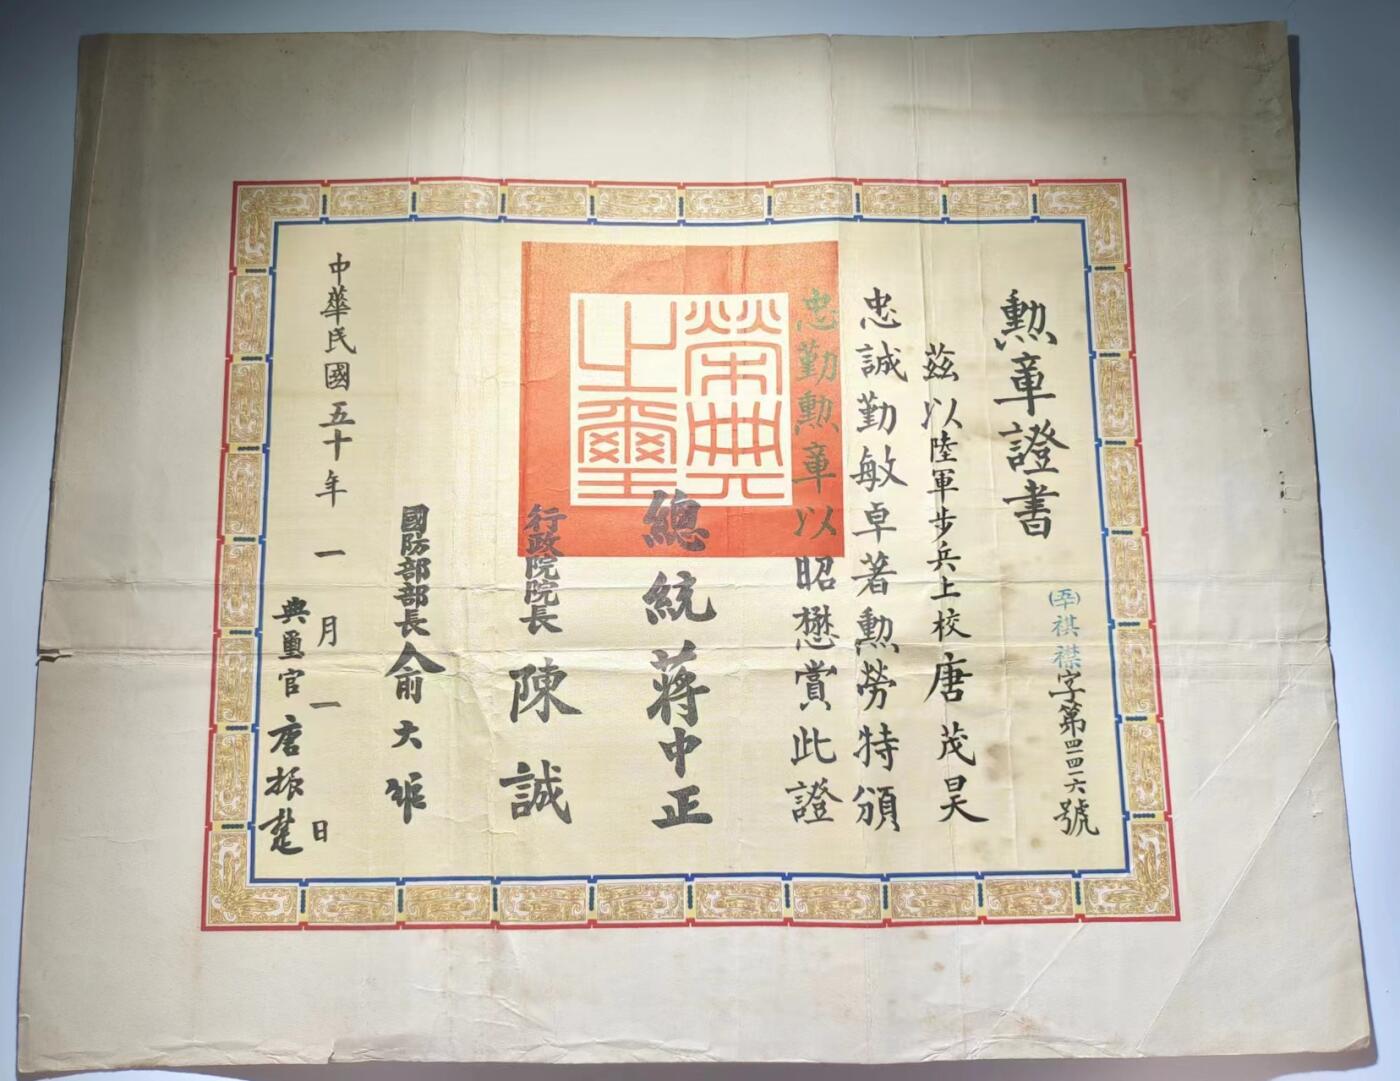 勲章證書
㊄祺襟字第四四一六號
茲以陸軍步兵上校唐茂昊
忠誠勤敏卓著勲勞特頒
忠勤勲章以昭懋賞此證
榮典之璽
總統蔣中正
行政院院長陳誠
國防部部長俞大維
中華民國五十年一月一日
典璽官唐振楚